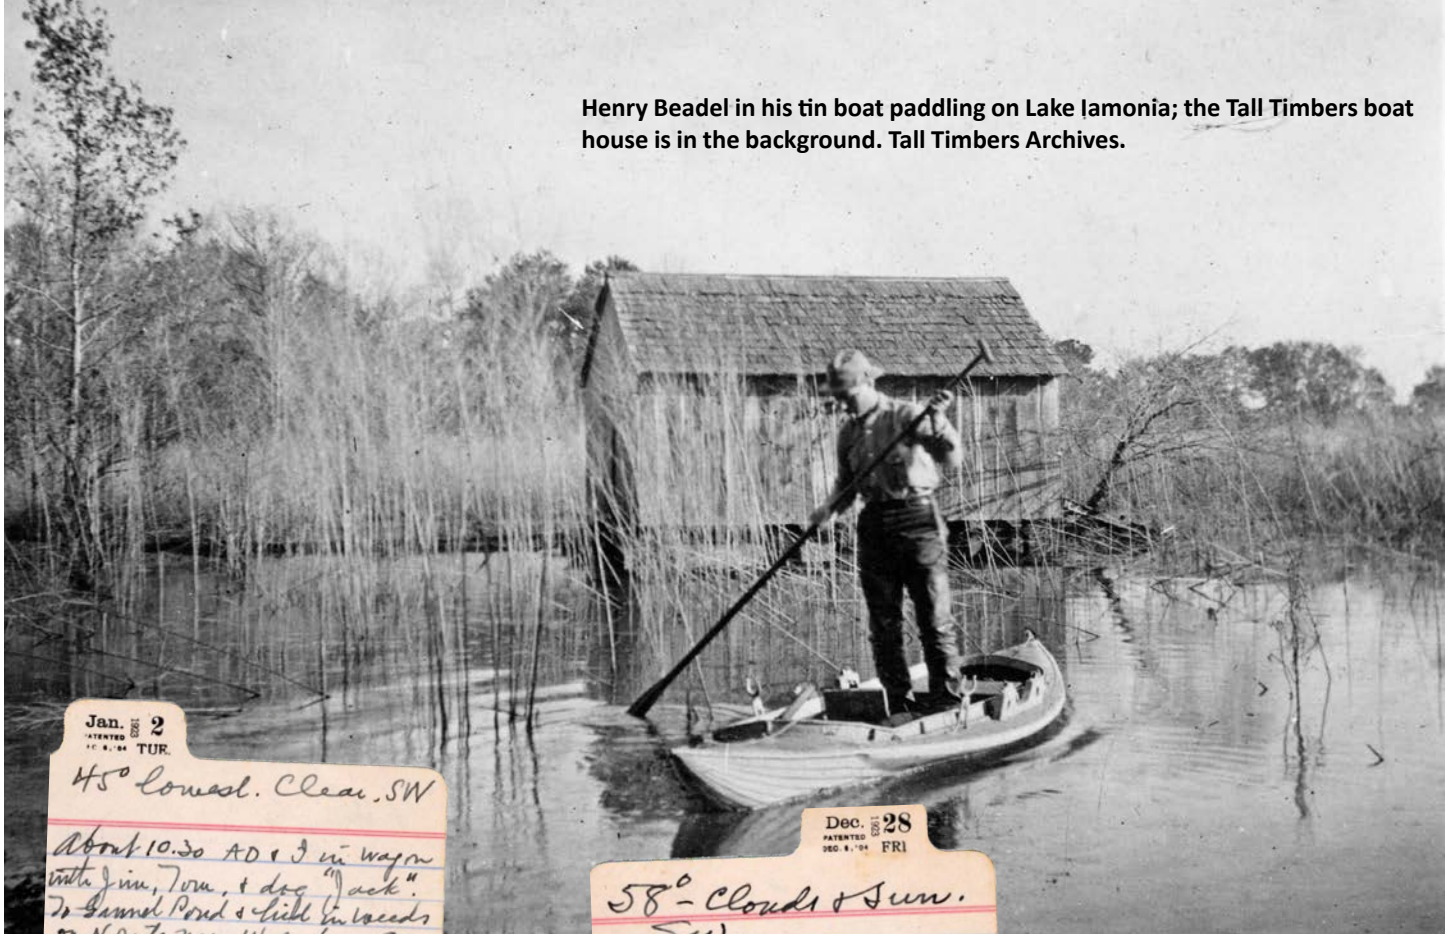 Henry Beadel in his tin boat paddling on Lake Iamonia; the Tall Timbers boat
house is in the background. Tall Timbers Archives.
Jan. 1923 2
PATENTED
DEC. 6, '04 TUE.
45° lowest. Clear. SW
About 10.30 AD & I in wagon
with Jim, Tom, & dog "Jack".
To Gannel Pond & hid in weeds
Dec. 1923 28
PATENTED
DEC. 6, '04 FRI
58° - Clouds & Sun.
SW